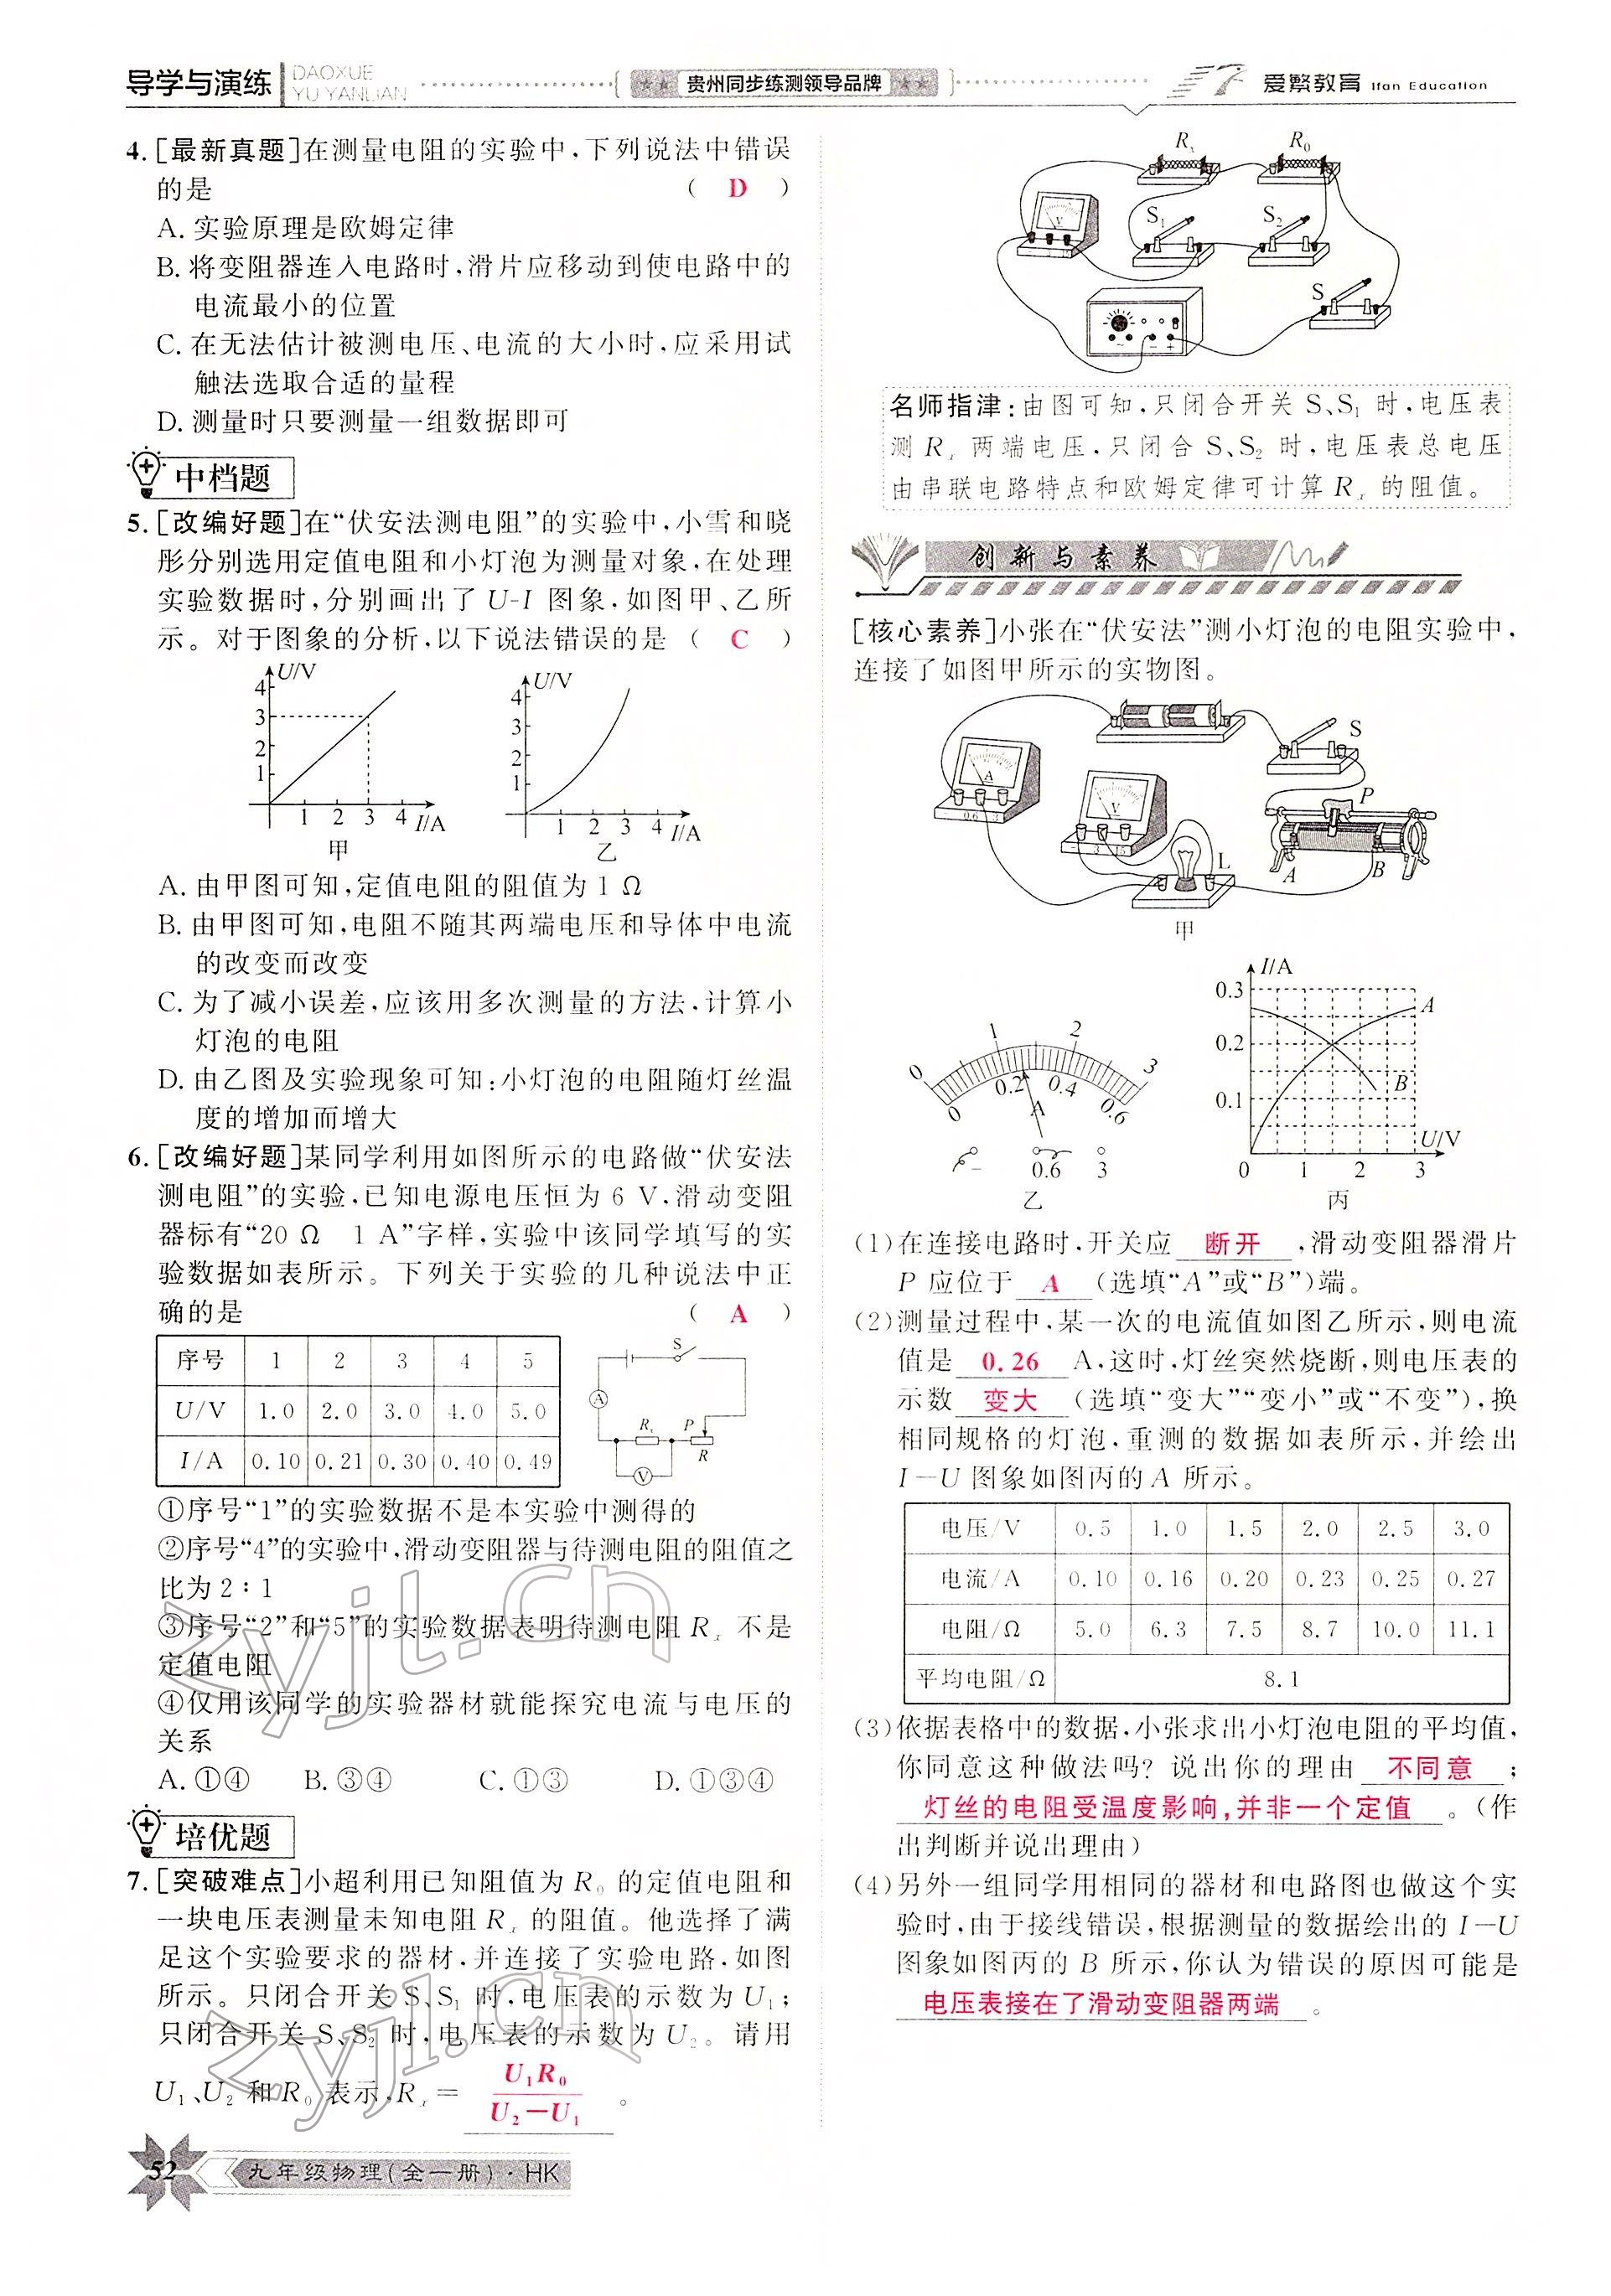 导学与演练
DAOXUE
YU YANLIAN
贵州同步练测领导品牌
爱繁教育 Ifan Education
4. [最新真题]在测量电阻的实验中,下列说法中错误
的是 ( D )
A. 实验原理是欧姆定律
B. 将变阻器连入电路时,滑片应移动到使电路中的
电流最小的位置
C. 在无法估计被测电压、电流的大小时,应采用试
触法选取合适的量程
D. 测量时只要测量一组数据即可
中档题
5. [改编好题]在“伏安法测电阻”的实验中,小雪和晓
彤分别选用定值电阻和小灯泡为测量对象,在处理
实验数据时,分别画出了 U-I 图象,如图甲、乙所
示。对于图象的分析,以下说法错误的是 ( C )
U/V
4
3
2
1
1 2 3 4 I/A
甲
U/V
4
3
2
1
1 2 3 4 I/A
乙
A. 由甲图可知,定值电阻的阻值为 1 Ω
B. 由甲图可知,电阻不随其两端电压和导体中电流
的改变而改变
C. 为了减小误差,应该用多次测量的方法,计算小
灯泡的电阻
D. 由乙图及实验现象可知:小灯泡的电阻随灯丝温
度的增加而增大
6. [改编好题]某同学利用如图所示的电路做“伏安法
测电阻”的实验,已知电源电压恒为 6 V,滑动变阻
器标有“20 Ω 1 A”字样,实验中该同学填写的实
验数据如表所示。下列关于实验的几种说法中正
确的是 ( A )
序号 1 2 3 4 5
U/V 1.0 2.0 3.0 4.0 5.0
I/A 0.10 0.21 0.30 0.40 0.49
S
A
Rx P
R
V
①序号“1”的实验数据不是本实验中测得的
②序号“4”的实验中,滑动变阻器与待测电阻的阻值之
比为 2∶1
③序号“2”和“5”的实验数据表明待测电阻 Rx 不是
定值电阻
④仅用该同学的实验器材就能探究电流与电压的
关系
A. ①④ B. ③④ C. ①③ D. ①③④
培优题
7. [突破难点]小超利用已知阻值为 R0 的定值电阻和
一块电压表测量未知电阻 Rx 的阻值。他选择了满
足这个实验要求的器材,并连接了实验电路,如图
所示。只闭合开关 S、S1 时,电压表的示数为 U1;
只闭合开关 S、S2 时,电压表的示数为 U2。请用
U1、U2 和 R0 表示,Rx= U1R0/(U2−U1) 。
52
九年级物理(全一册)·HK
Rx R0
V
S1 S2
S
名师指津:由图可知,只闭合开关 S、S1 时,电压表
测 Rx 两端电压,只闭合 S、S2 时,电压表总电压
由串联电路特点和欧姆定律可计算 Rx 的阻值。
创新与素养
[核心素养]小张在“伏安法”测小灯泡的电阻实验中,
连接了如图甲所示的实物图。
S
A
- 0.6 3
V
- 3 15
P
A B
L
甲
0 1 2 3
0 0.2 0.4 0.6
A
- 0.6 3
乙
I/A
0.3
0.2
0.1
A
B
U/V
0 1 2 3
丙
(1)在连接电路时,开关应 断开 ,滑动变阻器滑片
P 应位于 A (选填“A”或“B”)端。
(2)测量过程中,某一次的电流值如图乙所示,则电流
值是 0.26 A,这时,灯丝突然烧断,则电压表的
示数 变大 (选填“变大”“变小”或“不变”),换
相同规格的灯泡,重测的数据如表所示,并绘出
I—U 图象如图丙的 A 所示。
电压/V 0.5 1.0 1.5 2.0 2.5 3.0
电流/A 0.10 0.16 0.20 0.23 0.25 0.27
电阻/Ω 5.0 6.3 7.5 8.7 10.0 11.1
平均电阻/Ω 8.1
(3)依据表格中的数据,小张求出小灯泡电阻的平均值,
你同意这种做法吗? 说出你的理由 不同意 ;
灯丝的电阻受温度影响,并非一个定值 。(作
出判断并说出理由)
(4)另外一组同学用相同的器材和电路图也做这个实
验时,由于接线错误,根据测量的数据绘出的 I—U
图象如图丙的 B 所示,你认为错误的原因可能是
电压表接在了滑动变阻器两端 。
zyjl.cn
zyjl.cn